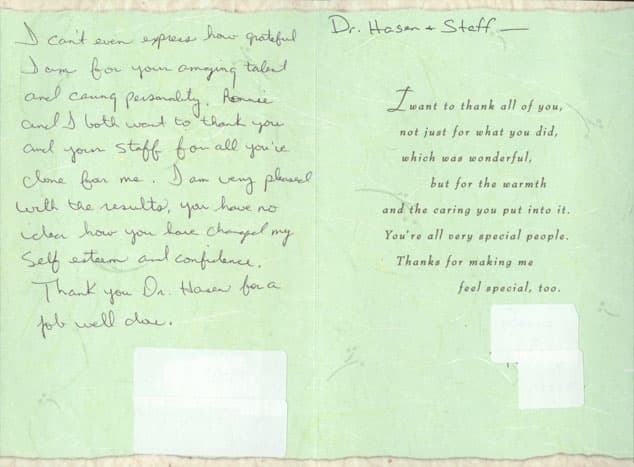 I can't even express how grateful
I am for your amazing talent
and caring personality. Ronnie
and I both want to thank you
and your staff for all you've
done for me. I am very pleased
with the results, you have no
idea how you have changed my
self esteem and confidence.
Thank you Dr. Hasen for a
job well done.
Dr. Hasen + Staff —
I want to thank all of you,
not just for what you did,
which was wonderful,
but for the warmth
and the caring you put into it.
You're all very special people.
Thanks for making me
feel special, too.